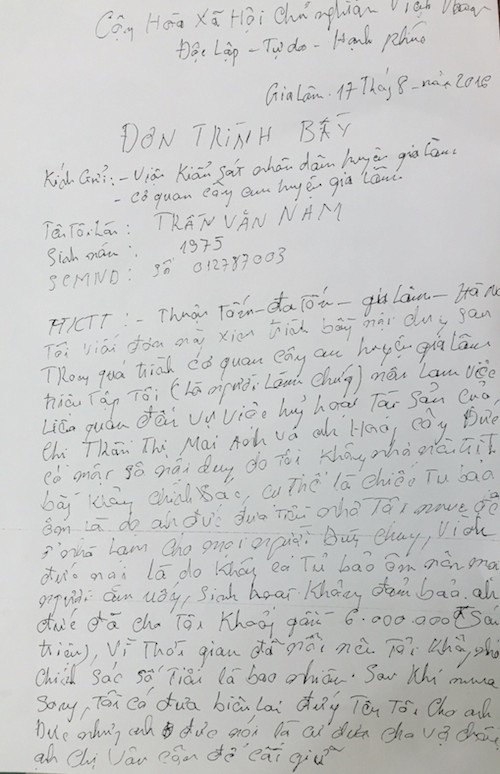 Cộng Hòa Xã Hội Chủ nghĩa Việt Nam
Độc Lập - Tự do - Hạnh Phúc
Gia Lâm. 17 Tháng 8 - năm 2018
ĐƠN TRÌNH BẦY
Kính Gửi: - Viện Kiểm Sát nhân dân huyện gia Lâm.
- cơ quan công an huyện gia Lâm
Tên Tôi Là: TRẦN VĂN NAM
Sinh năm: 1975
SCMND: Số 012787003
HKTT: - Thuận Tốn - Đa Tốn - gia Lâm - Hà Nộ
Tôi viết đơn này xin trình bầy nội dung sau
Trong quá trình cơ quan công an huyện gia Lâm
triệu Tập Tôi (Là người Làm chứng) nên Lam việc
Liên quan đến vụ việc huỷ hoại Tài Sản của
Chị Trần Thị Mai Anh và anh Hoàng Công Đức
có một số nội dung do Tôi Không nhớ nên trình
bầy Không chính Sac, cụ thể là chiếc Tủ bảo
ôn là do anh đức đưa Tiền nhờ Tôi mua để
ở nhà Lam cho mọi người Dùng chung, Vì anh
đức nói là do Không có Tủ bảo ôn nên mọi
người ăn uống, Sinh hoạt Không đảm bảo. anh
đức đã cho Tôi Khoảng gần 6.000.000đ (Sáu
triệu), Vì Thời gian đã nên Tôi Không nhớ
chính Sác số Tiền là bao nhiêu. Sau Khi mua
Song, Tôi có đưa biên Lai đứng Tên Tôi Cho anh
Đức nhưng anh đức nói là cứ đưa cho vợ chồng
anh Chị Vân cầm để cất giữ